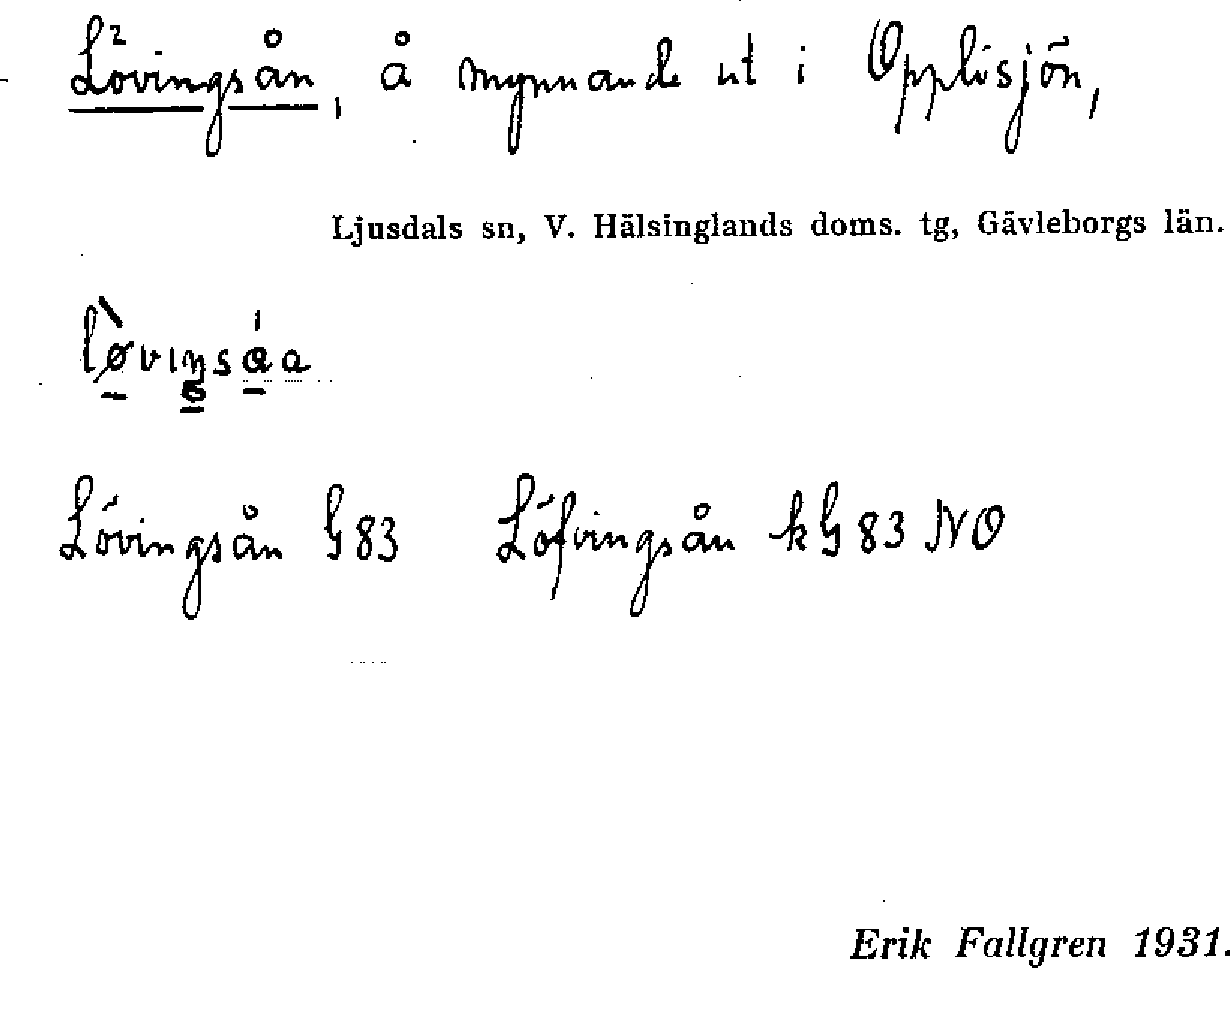 Lövingsån, å mynnande ut i Opplisjön,
Ljusdals sn, V. Hälsinglands doms. tg, Gävleborgs län.
Lövingsån G 83 Löfvingsån k G 83 NO
Erik Fallgren 1931.